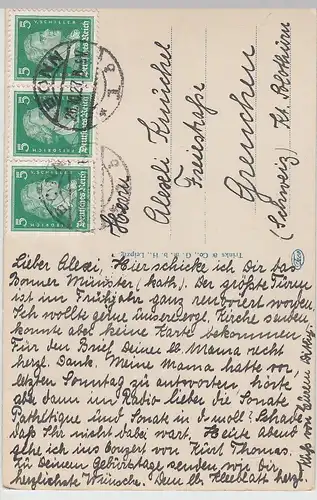 5
Deutsches Reich
5
FRIEDRICH
Deutsches Reich
5
Deutsches Reich
BONN
Herrn
Alexli
Freiestraße
Grenchen
(Schweiz) Kt. Solothurn
Trinks & Co., G. m. b. H., Leipzig
Lieber Alexi, Hier schicke ich Dir das
Bonner Münster (kath.). Der größte Turm
ist im Frühjahr ganz renoviert worden.
Ich wollte gerne unsere evgl. Kirche senden
konnte aber keine Karte bekommen.
Für den Brief Deiner lb. Mama recht
herzl. Dank. Meine Mama hatte vor
letzten Sonntag zu antworten, hörte
aber dann im Radio lieber die Sonate
Pathetique und Sonate in d-moll! Schade
daß Ihr nicht dabei wart. Heute Abend
gehe ich ins Konzert von Kurt Thomas.
Zu Deinem Geburtstage senden wir Dir
herzlichste Wünsche. Dem lb. Kleeblatt herzl.
von Eurem